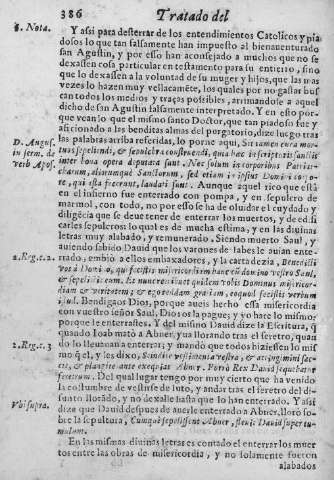 386 Tratado del
8. Nota.
Y assi para desterrar de los entendimientos Catolicos y pia
dosos lo que tan falsamente han impuesto al bienauenturado
san Agustin, y por esso han aconsejado a muchos que no se
dexassen cosa particular en testamento para su entierro, sino
que lo dexassen a la voluntad de su muger y hijos, que las mas
vezes lo hazen muy vellacamẽte, los quales por no gastar bus
can todos los medios y traças possibles, arrimandose a aquel
dicho de san Agustin falsamente interpretado. Y en esto por-
que vean lo que el mismo santo Doctor, que tan piadoso fue y
aficionado a las benditas almas del purgatorio, dize luego tras
D. Augus.
in serm. de
verb Apos.
las palabras arriba referidas, lo pone aqui, Sit tamen cura mor-
tuos sepeliendi, & sepulcra construendi, quia hæc in scripturis sanctis
inter bona opera deputata sunt. Nec solum in corporibus Patriar-
charum, aliorumque Sanctorum, sed etiam in ipsius Domini corpo
re, qui ista fecerunt, laudati sunt. Aunque aquel rico que està
en el infierno fue enterrado con pompa, y en sepulcro de
marmol, con todo, no por esso se ha de oluidar el cuydado y
diligẽcia que se deue tener de enterrar los muertos, y de edifi
carles sepulcros: lo qual es de mucha estima, y en las diuinas
letras muy alabado, y remunerado. Siendo muerto Saul, y
auiendo sabido Dauid que los varones de Iabes le auian ente-
2. Reg. c. 2.
rrado, embiò a ellos embaxadores, y la carta dezia, Benedicti
vos à Domino, qui fecistis misericordiam hanc cũ domino vestro Saul,
& sepelistis eum. Et nunc retribuet quidem vobis Dominus misericor-
diam & veritatem; & ego reddam gratiam, eo quod fecistis verbum
istud. Bendigaos Dios, porque aueis hecho essa misericordia
con vuestro señor Saul, Dios os la pague; y yo hare lo mismo
por que le enterrastes. Y del mismo Dauid dize la Escritura, q̃
quando Ioab matò a Abner, yua llorando tras el feretro, quan
2. Reg. c. 3
do lo lleuauan a enterrar; y mandò que todos hiziessen lo mis
mo q̃ el, y les dixo, Scindite vestimenta vestra, & accingimini sac-
cis, & plangite ante exequias Abner. Porrò Rex Dauid sequebatur
feretrum. Del qual lugar tengo por muy cierto que ha venido
la costumbre de vestirse de luto, y andar tras el feretro del di-
funto llorãdo, y no dexalle hasta que lo han enterrado. Y assi
Vbi supra.
dize que Dauid despues de auerle enterrado a Abner, llorò so
bre la sepultura, Cumque sepelissent Abner, fleuit Dauid super tu-
mulum.
En las mismas diuinas letras es contado el enterrar los muer
tos entre las obras de misericordia, y no solamente fueron
alabados